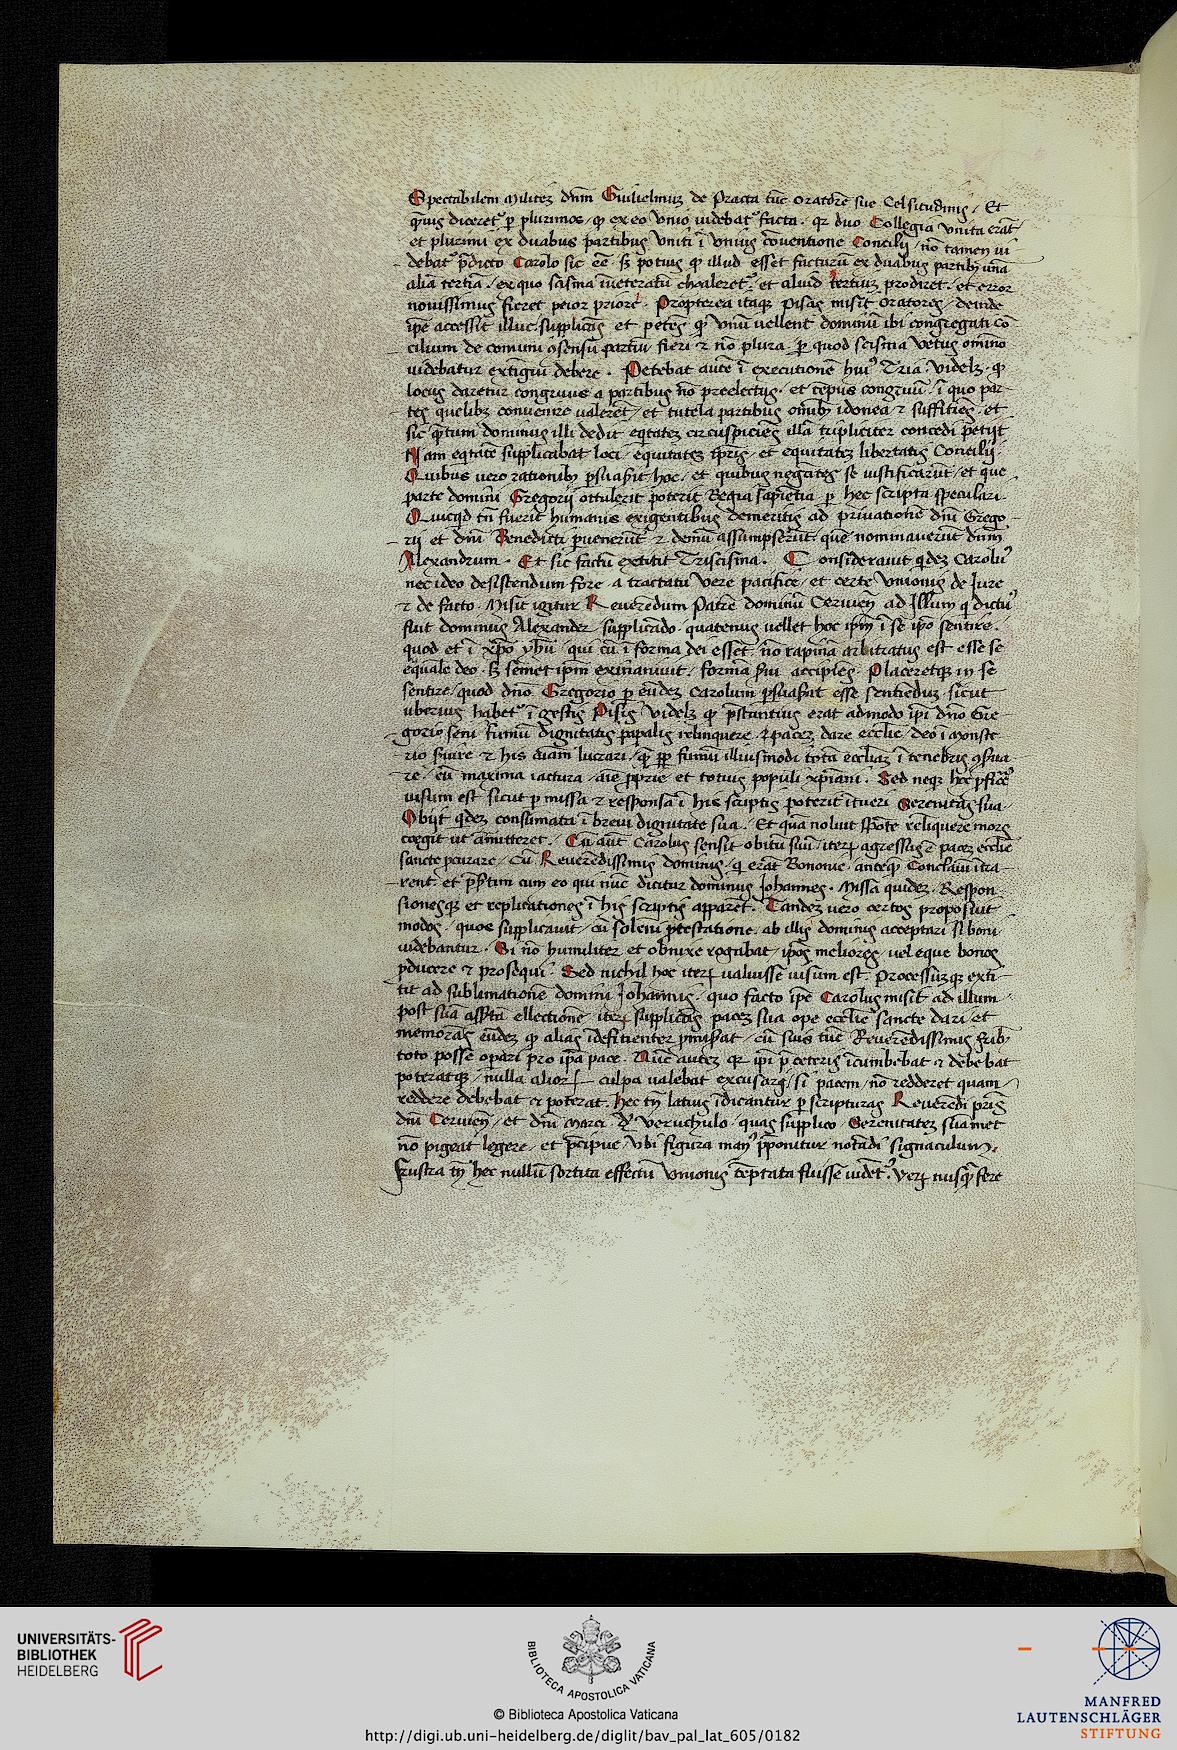 Spectabilem Militeʒ dñm Guilielmuʒ de Practa tūc oratorē sue Celsitudinis / Et
et plurimi ex duabus partibus vniti ī vnius cōuentione Concilij / nō tamen ui
debat᷑ p̄dicto Carolo sic eē
aliā tertia / ex quo scisma inueteratū et aliud tertiuʒ prodiret / et error
nouissimus fieret peior priore · Propterea itaqꝫ Pisas misit oratores / deinde
ip̄e accessit illuc supplicās et petēs qꝫ vnū uellent dominū ibi congregati cō
cilium de comuni ꝯsensu partiū fieri ⁊ nō plura ꝑ quod scisma vetus omīno
uidebatur extingui debere · Petebat autē ī executione huiꝰ Tria · videlꝫ · qꝫ
locus daretur congruus a partibus nō preelectus · et tēpus congruū / ī quo par
tes quelibꝫ conuenire ualerēt / et tutela partibus omībꝫ idonea ⁊ sufficiēs · et
sic q̄tum dominus illi dedit eq̄tateʒ circūspiciēs illā tripliciter concedi petijt
Nam eq̄tatē supplicabat loci / equitateʒ tp̄ris / et equitateʒ libertatis Concilij ·
Quibus uero rationibꝫ ꝑsuasit hoc / et quibus negātes se iustificarūt / et que
parte domini Gregorij ottulerit poterit Regia sapiētia ꝑ hec scripta speculari ·
Quicqd tn̄ fuerit humanis exigentibus demeritis ad priuationē dñi Grego
rij et dñi Benedicti ꝑuenerūt ⁊ demū assumpserūt quē nominauerūt dñm
Alexandrum · Et sic factū extitit Triscisma · Considerauit qdeʒ Carolꝰ
nec ideo desistendum fore · a tractatu vere pacifice / et certe Vnionis de Jure
⁊ de facto · Misit igitur Reuerēdum Patrē dominū Ceruieñ ad Illum q dictꝰ
fuit dominus Alexander supplicādo · quatenus uellet hoc ip̄m ī se ip̄o sentire ·
quod et ī xp̄o yhu̅ · qui cū ī forma dei esset nō rapinā arbitratus est esse se
equale deo · sꝫ semet ip̄m exinaniuit / formā s̄ui accipiēs · Placeretqꝫ in se
sentire / quod dño Gregorio ꝑ eūdeʒ Carolum ꝑsuasū esse sentiēduʒ sicut
uberius habet᷑ ī gestis Pisis / videlꝫ qꝫ p̄stantius erat admodo ip̄i dño Gre
gorio seni fumū dignitatis papalis relinquere · ⁊ paceʒ dare eccl̄ie / deo ī monste
rio s̄uire ⁊ his aīam lucrari / q̄ ꝓꝑ fumū illiusmodi totā eccl̄iaʒ ī tenebris ꝯs̄ua
re / cū maxima iactura / aīe ꝓprie et totius populi xp̄iani · Sed neqꝫ
uisum est sicut ꝑ missa ⁊ responsa ī his scriptis poterit ītueri Serenitas sua
Obijt qdeʒ consumata ī breui dignitate sua · Et quā noluit spōte reliquere mors
coegit ut amitteret · Cū aūt Carolus sensit obitū suū / iteꝝ agressus ē paceʒ eccl̄ie
sancte ꝓcurare / Cū Reuerēdissimis dominis / q erāt Bononie · anteqꝫ Conclaui ītra
rent · et p̄sertim cum eo qui nūc dicitur dominus Johannes · Missa quideʒ · Respon
sionesqꝫ et replicationes ī his scriptis apparēt · Tandeʒ uero certos proposuit
modos / quos supplicauit / cū solēni ꝓtestatione / ab illis dominis acceptari si boni
uidebantur · Si nō humiliter et obnixe rogabat / ip̄os meliores / uel eque bonos
ꝓducere ⁊ prosequi · Sed nichil hoc iteꝝ ualuisse uisum est Processūqꝫ exti
tit ad sublimationē domini Johannis · quo facto ip̄e Carolus misit ad illum
post suā ellectionē iteꝝ supplicās paceʒ sua ope eccl̄ie sancte dari / et
memorās eūdeʒ qꝫ alias īdefitienter cū suis tūc Reuerēdissimis
toto posse opari pro ip̄a pace · Nūc auteʒ qꝫ ip̄i p̄ ceteris īcumbebat ⁊ debebat
poteratqꝫ / nulla alioꝝ culpa ualebat excusari / si pacem / nō redderet quam
reddere debebat ⁊ poterat · Hec tn̄ latius īdicantur ꝑ scripturas Reuerēdi pr̄is
dñi Ceruieñ / et dñi Marci · de Veruchulo · quas supplico · Serenitateʒ suāmet
nō pigeat legere · et p̄cipue vbi figura manꝰ p̄ponitur notādi signaculum ·
Frustra tn̄ hec nullū sortita effectū vnionis tēptata fuisse uidet᷑ · veꝝ nusq̄ fere
UNIVERSITÄTS-
BIBLIOTHEK
HEIDELBERG
BIBLIOTECA APOSTOLICA VATICANA
© Biblioteca Apostolica Vaticana
http://digi.ub.uni-heidelberg.de/diglit/bav_pal_lat_605/0182
MANFRED
LAUTENSCHLÄGER
STIFTUNG